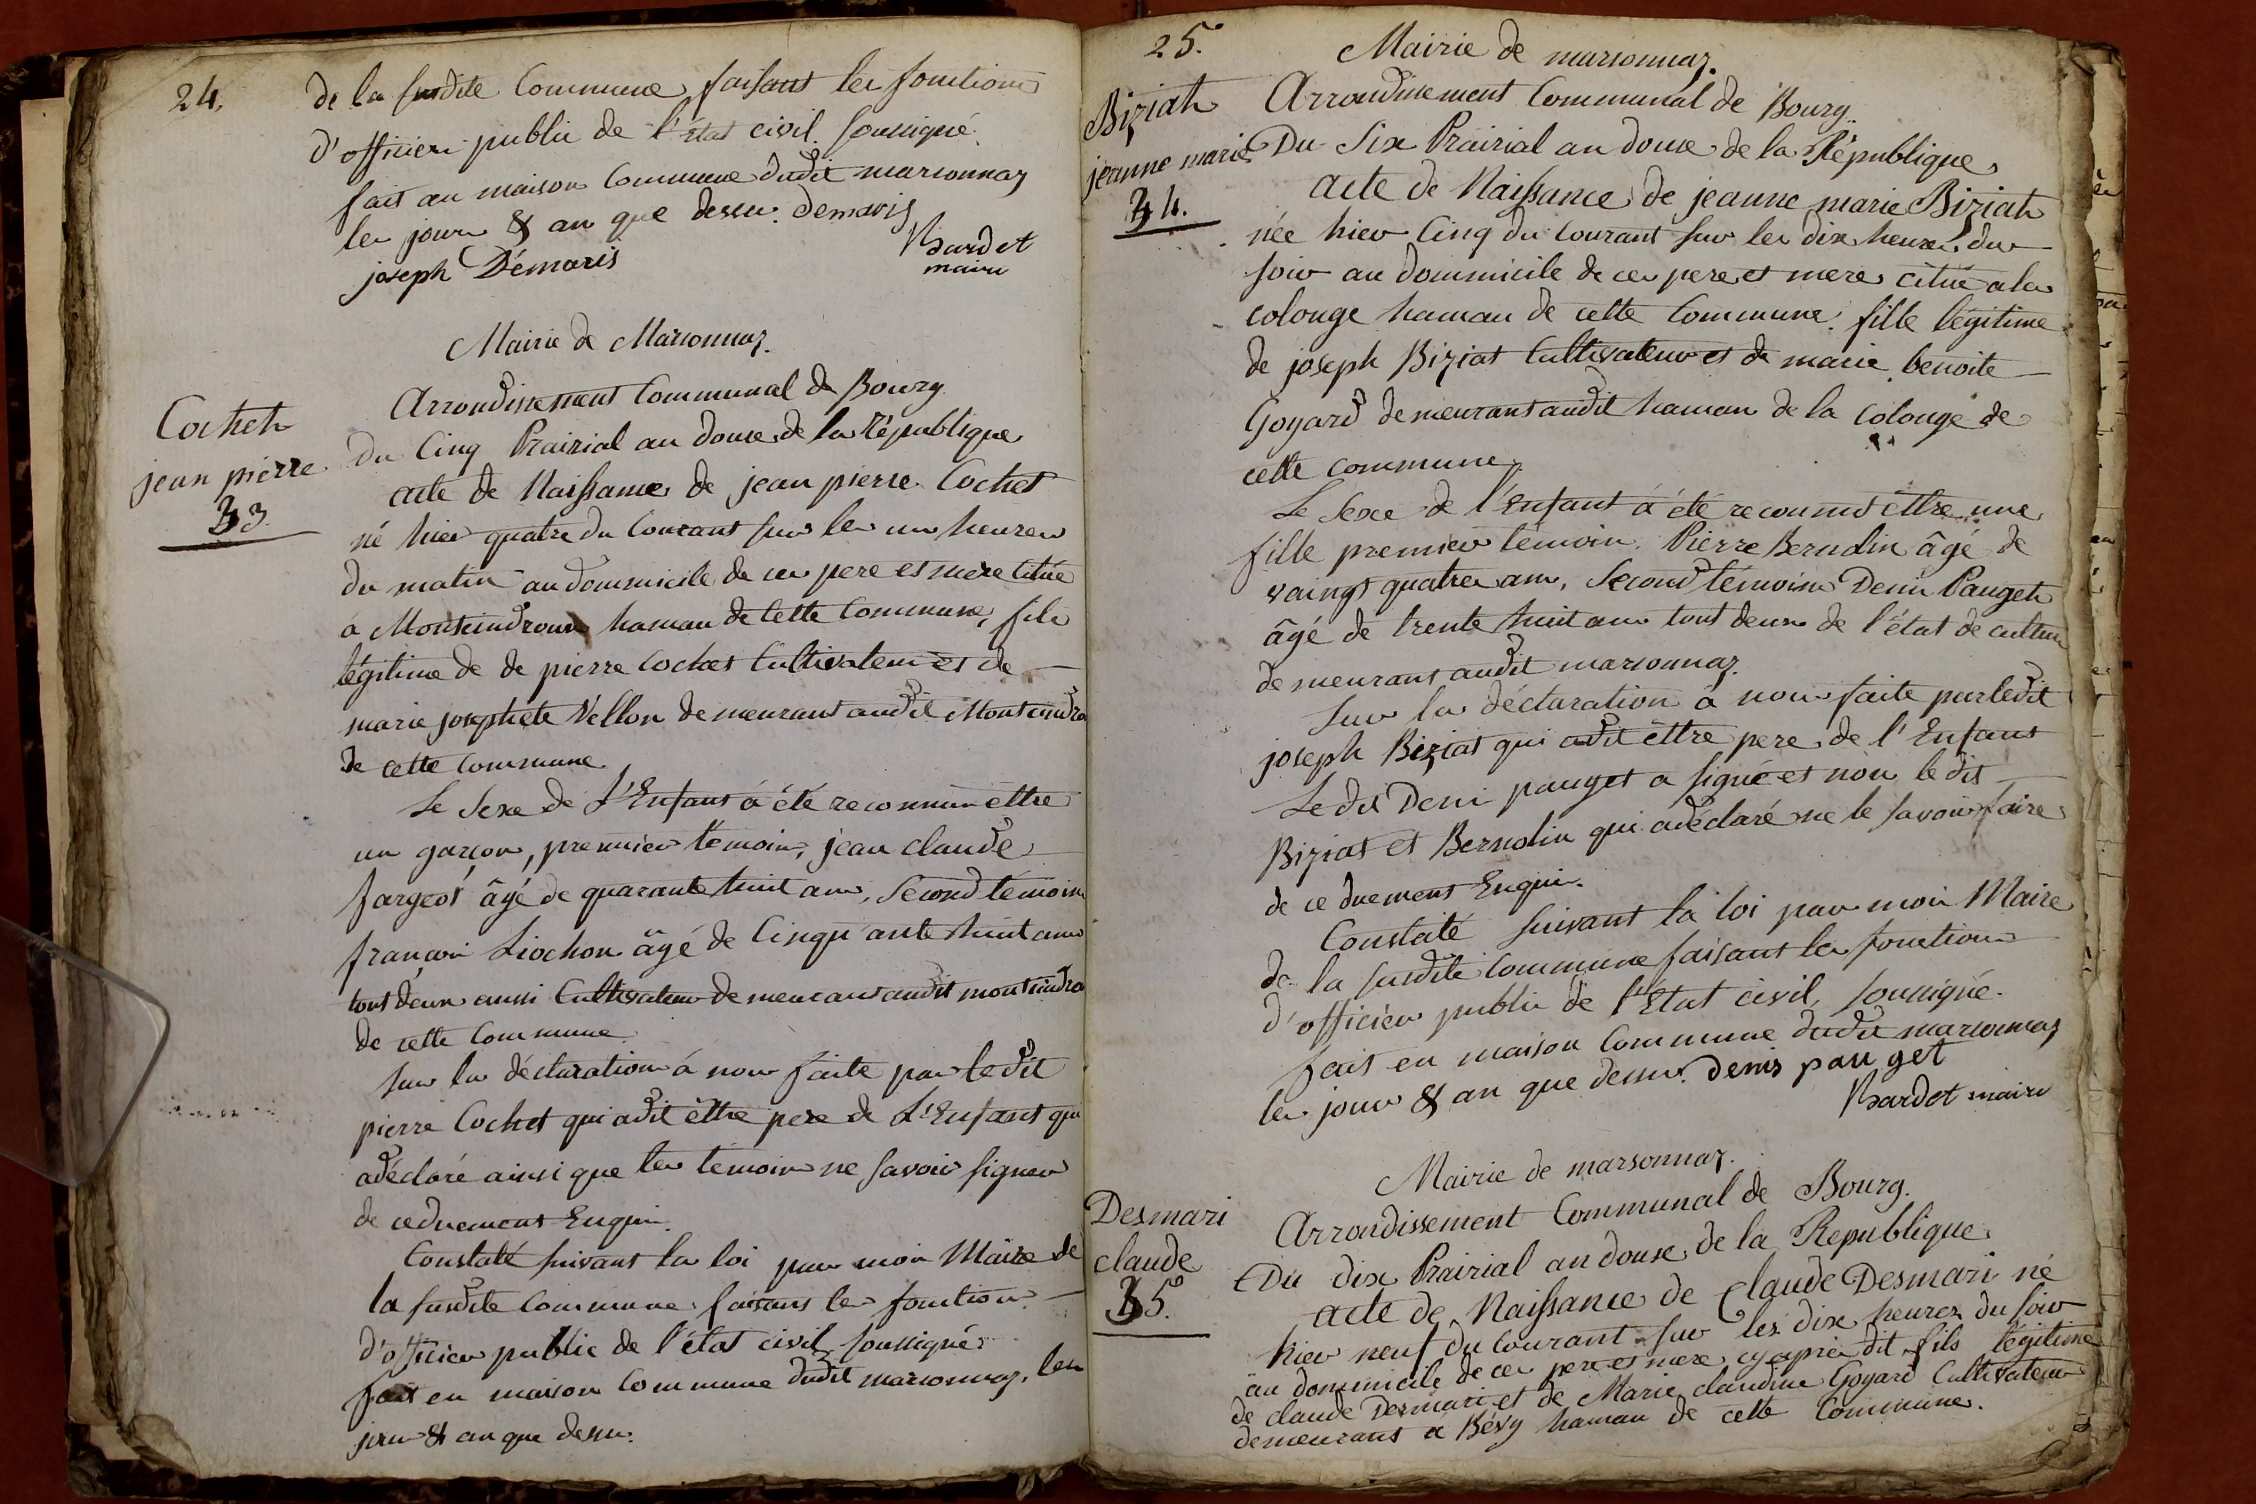 24.
de la susdite Commune, faisant les fonctions
d'officier public de l'état civil soussigné.
fait au maison Commune dudit marsonnaz
les jour & an que dessu. demaris
joseph Démaris
Bardet
maire
Mairie de Marsonnaz.
Arrondissement Communal de Bourg
Cochet
jean pierre
33.
du Cinq Prairial an douse de la République
acte de Naissance de jean pierre Cochet
né hier quatre du Courant sur les un heures
du matin au dommicile de ces pere et mere citué
à Montsindroux hamau de Cette Commune, fils
légitime de de pierre Cochet Cultivateur et de
marie josephete Vellon demeurant audit Montsindro
de cette commune
Le Sexe de L'Enfant à été reconnu être
un garçon, premier témoin, jean claude
fargeot âgé de quarante huit ans, Second témoin
françois Liochon âgé de Cinquante huit ans
tout deux aussi Cultivateur demeurant audit montsindro
de cette Commune
Sur la déclaration à nous faite par ledit
pierre Cochet qui adit être pere de L'Enfant qui
adéclaré ainsi que les témoins ne savoir signer
de ceduement Enquis.
Constaté suivant la loi par moi Maire de
la susdite Commune, faisant les fonctions
d'officier public de l'état civil soussigné
fait en maison Commune dudit marsonnaz, les
jour & an que dessu.
25.
Mairie de marsonnaz.
Arrondissement Communal de Bourg.
Biziat
jeanne marie
34.
Du Six Prairial an douse de la République,
acte de Naissance de jeanne marie Biziat
née hier Cinq du courant sur les dix heures du
soir au dommicile de ces pere et mere citué ala
colonge hamau de cette Commune, fille légitime
de joseph Biziat Cultivateur et de marie benoite
Goyard demeurant audit hamau de la Colonge de
cette commune.
Le Sexe de l'Enfant à été reconnut être une
fille premier témoin, Pierre Bernolin âgé de
vaingt quatre ans, Second témoin Denis Pauget
âgé de trente huit ans tout deux de l'état de culture
demeurant audit marsonnaz.
Sur la déclaration à nous faite par ledit
joseph Biziat qui adit être pere de l'Enfant
Ledit Deni pauget a signé et non le dit
Biziat et Bernolin qui adéclaré ne le savoir faire
de ce duement Enquis.
Constaté suivant la loi par moi Maire
de la susdite commune faisant les fonctions
d'officier public de l'Etat civil, soussigné.
fait en maison Commune dudit marsonnaz
les jour & an que dessu. denis pau get
Bardet maire
Mairie de marsonnaz.
Arrondissement Communal de Bourg.
Desmari
claude
35.
Du dix Prairial an douse de la Republique
acte de Naissance de Claude Desmari né
hier neuf du courant sur les dix heures du soir
au dommicile de ces pere et mere cyaprès dit fils légitime
de claude Desmari et de Marie claudine Goyard Cultivateur
demeurant à Bévy hamau de cette Commune.